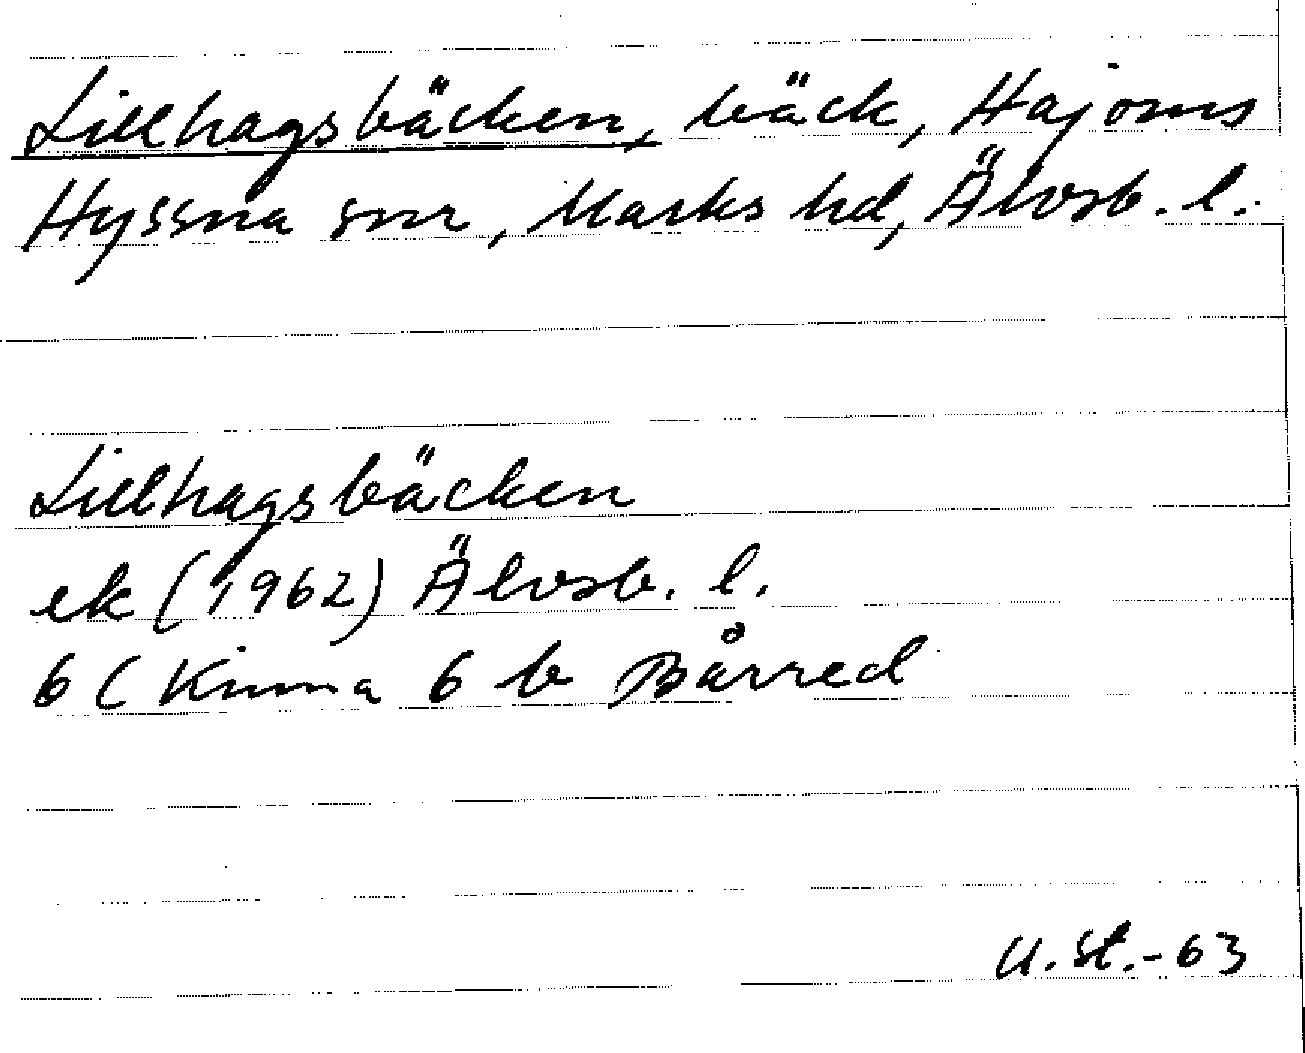 Lillhagsbäcken, bäck, Hajoms
Hyssna snr, Marks hd, Älvsb. l.
Lillhagsbäcken
ek (1962) Älvsb. l.
6 C Kinna 6 b Bårred
U. St.-63